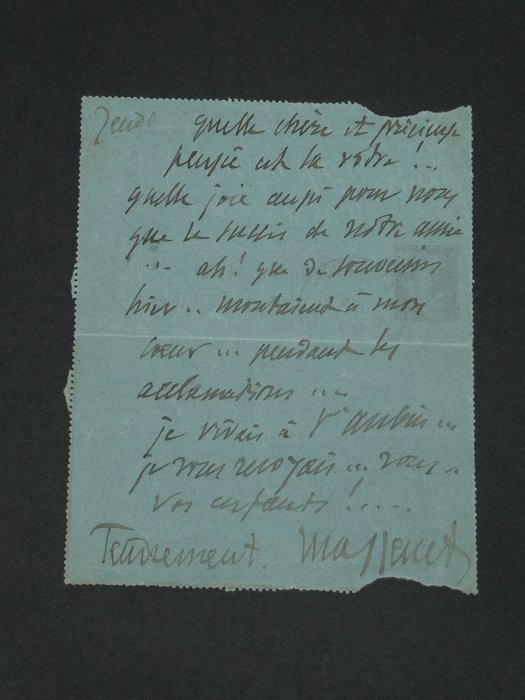 Jeudi quelle chère et précieuse
pensée est la vôtre !..
quelle joie aussi pour nous
que le succès de notre amie
... ah ! que de souvenirs
hier .. montaient à mon
cœur ... pendant les
acclamations ...
je vivais à St Aubin ...
je vous revoyais ... vous ..
vos enfants ! .....
Tendrement. Massenet